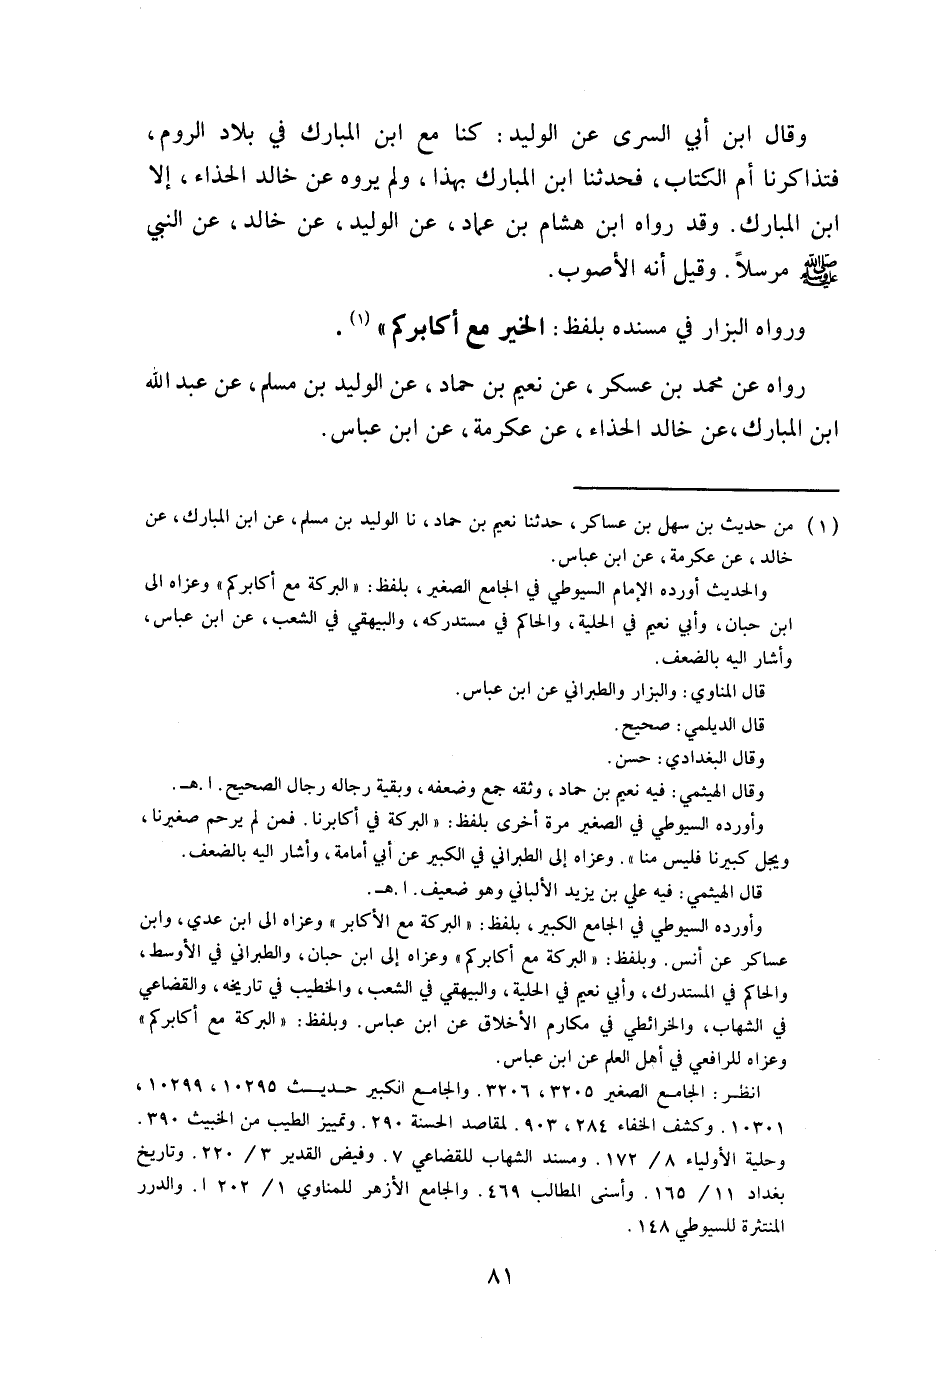 وقال ابن أبي السرى عن الوليد: كنا مع ابن المبارك في بلاد الروم،
فتذاكرنا أم الكتاب، فحدثنا ابن المبارك بهذا، ولم يروه عن خالد الحذاء، إلا
ابن المبارك. وقد رواه ابن هشام بن عماد، عن الوليد، عن خالد، عن النبي
ﷺ مرسلاً. وقيل أنه الأصوب.
ورواه البزار في مسنده بلفظ: الخير مع أكابركم» (١).
رواه عن محمد بن عسكر، عن نعيم بن حماد، عن الوليد بن مسلم، عن عبد الله
ابن المبارك،عن خالد الحذاء، عن عكرمة، عن ابن عباس.
(١) من حديث بن سهل بن عساكر، حدثنا نعيم بن حماد، نا الوليد بن مسلم، عن ابن المبارك، عن
خالد، عن عكرمة، عن ابن عباس.
والحديث أورده الإمام السيوطي في الجامع الصغير، بلفظ: «البركة مع أكابركم» وعزاه الى
ابن حبان، وأبي نعيم في الحلية، والحاكم في مستدركه، والبيهقي في الشعب، عن ابن عباس،
وأشار اليه بالضعف.
قال المناوي: والبزار والطبراني عن ابن عباس.
قال الديلمي: صحيح.
وقال البغدادي: حسن.
وقال الهيثمي: فيه نعيم بن حماد، وثقه جمع وضعفه، وبقية رجاله رجال الصحيح. ا.هـ.
وأورده السيوطي في الصغير مرة أخرى بلفظ: «البركة في أكابرنا. فمن لم يرحم صغيرنا،
ويجل كبيرنا فليس منا». وعزاه إلى الطبراني في الكبير عن أبي أمامة، وأشار اليه بالضعف.
قال الهيثمي: فيه علي بن يزيد الألباني وهو ضعيف. ا.هـ.
وأورده السيوطي في الجامع الكبير، بلفظ: «البركة مع الأكابر» وعزاه الى ابن عدي، وابن
عساكر عن أنس. وبلفظ: «البركة مع أكابركم» وعزاه إلى ابن حبان، والطبراني في الأوسط،
والحاكم في المستدرك، وأبي نعيم في الحلية، والبيهقي في الشعب، والخطيب في تاريخه، والقضاعي
في الشهاب، والخرائطي في مكارم الأخلاق عن ابن عباس. وبلفظ: «البركة مع أكابركم»
وعزاه للرافعي في أهل العلم عن ابن عباس.
انظر: الجامع الصغير ٣٢٠٥، ٣٢٠٦. والجامع الكبير حديث ١٠٢٩٥، ١٠٢٩٩،
١٠٣٠١. وكشف الخفاء ٢٨٤، ٩٠٣. لمقاصد الحسنة ٢٩٠. وتمييز الطيب من الخبيث ٣٩٠.
وحلية الأولياء ٨/ ١٧٢. ومسند الشهاب للقضاعي ٧. وفيض القدير ٣/ ٢٢٠. وتاريخ
بغداد ١١/ ١٦٥. وأسنى المطالب ٤٦٩. والجامع الأزهر للمناوي ١/ ٢٠٢ ا. والدرر
المنتثرة للسيوطي ١٤٨.
٨١